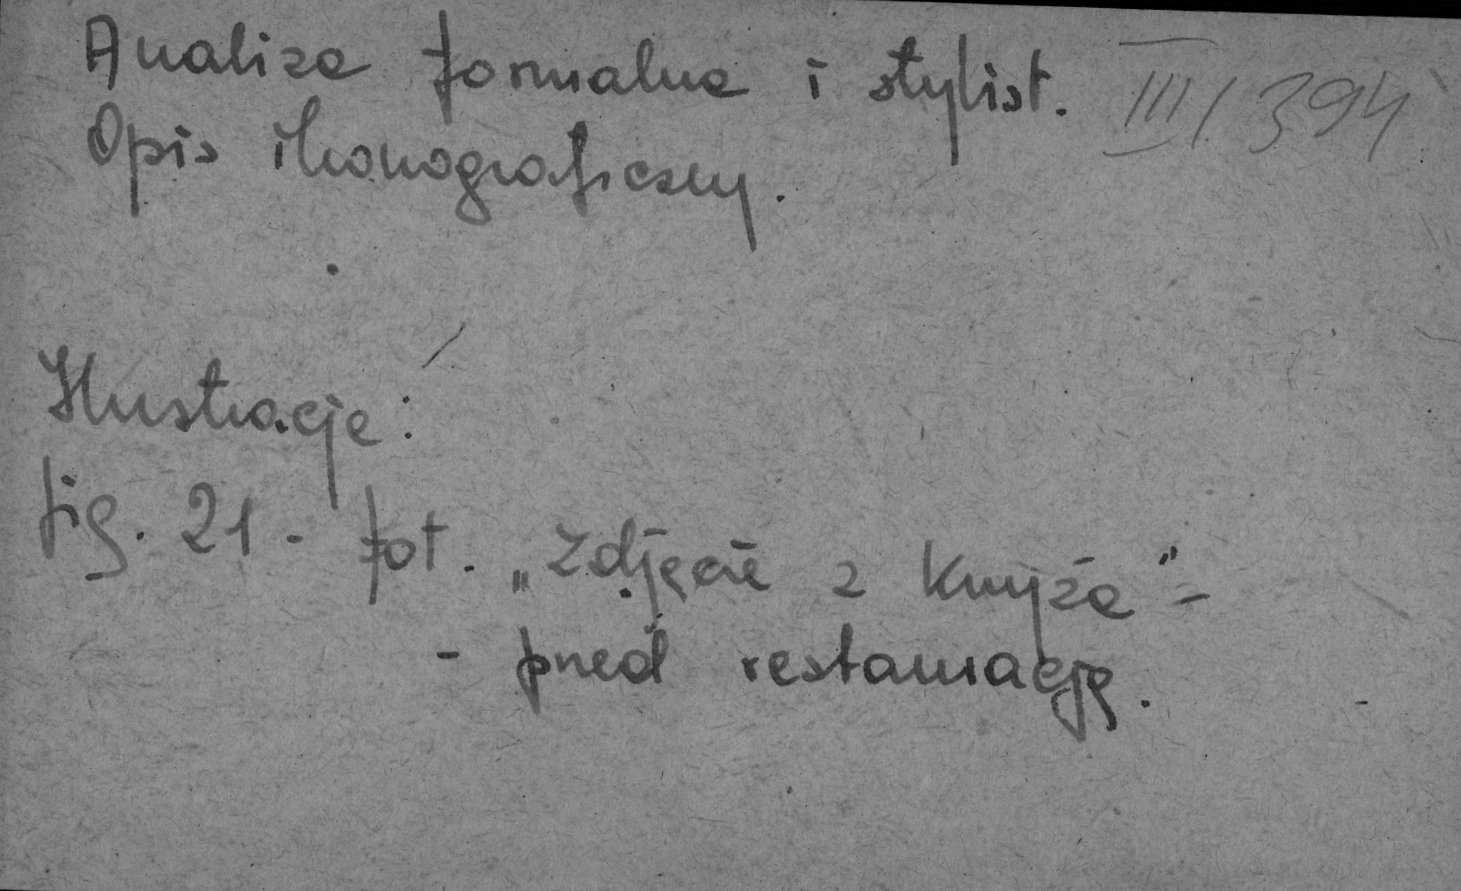 Analiza formalna i stylist. III/394
Opis ikonograficzny.
Ilustracje:
fig. 21 - fot. „Zdjęcie z Krzyża" -
- przed restauracją.